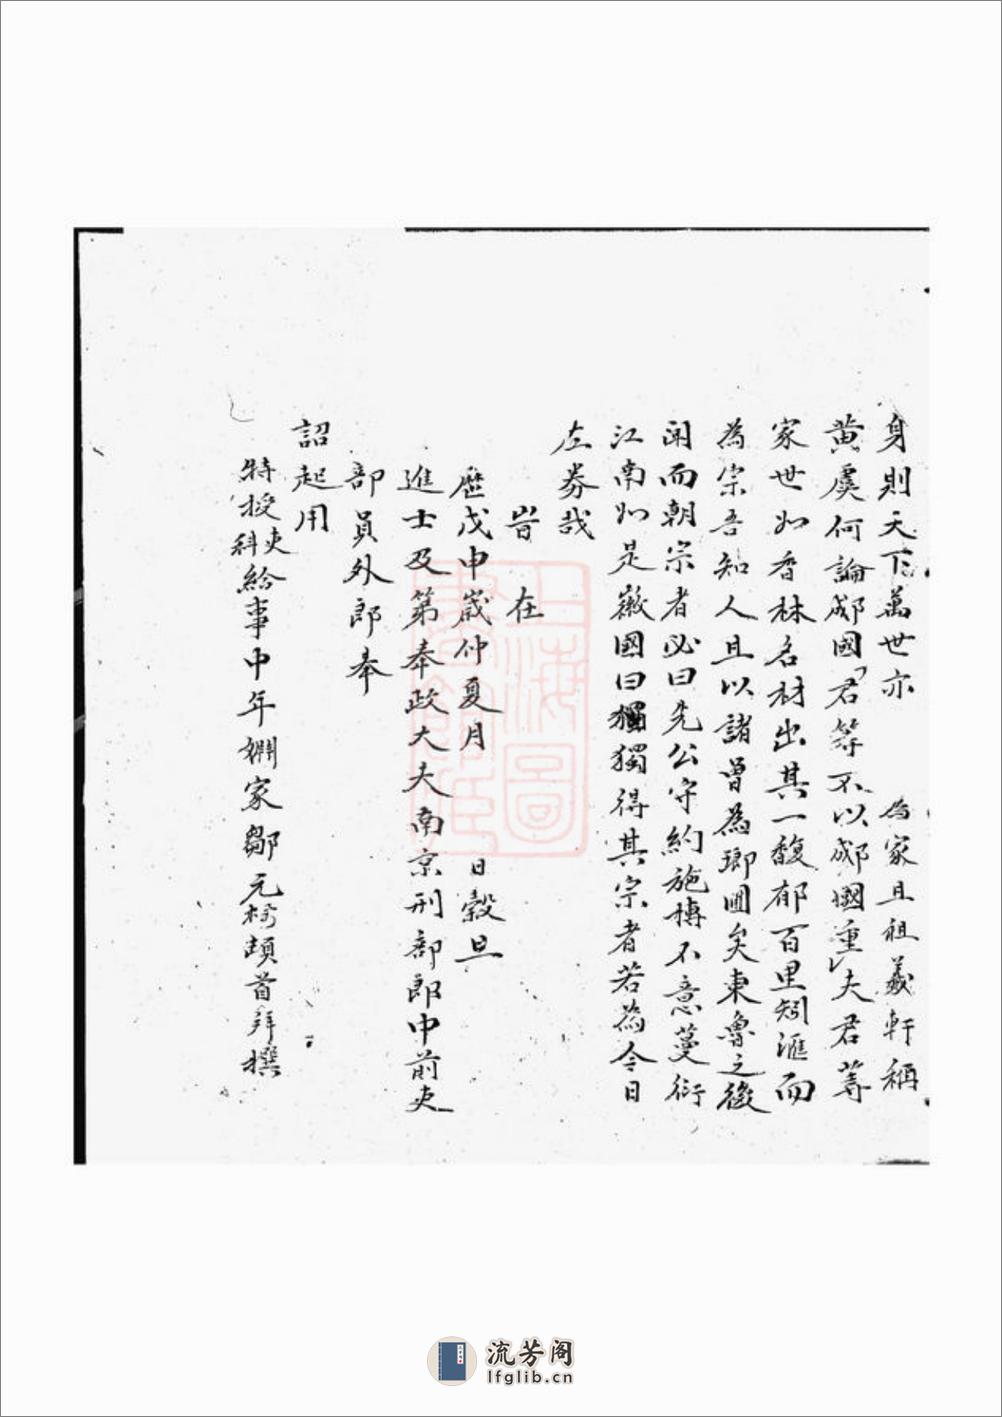 身則天下萬世亦 為家且祖羲軒稱
黃虞何論郕國君等不以郕國重夫君等
家世如香林名材出其一馥郁百里矧滙而
為宗吾知人且以諸曾為瑯圃矣東魯之後
閎而朝宗者必曰先公守約施博不意蔓衍
江南如是嶶國曰獨得其宗者若為今日
左券哉
旹 在
歷戊申嵗仲夏月 日穀旦
進士及第奉政大夫南京刑部郎中前吏
部員外郎奉
詔起用
特授吏科給事中年婣家鄒元標頓首拜撰
上海圖書館藏
流芳阁
lfglib.cn